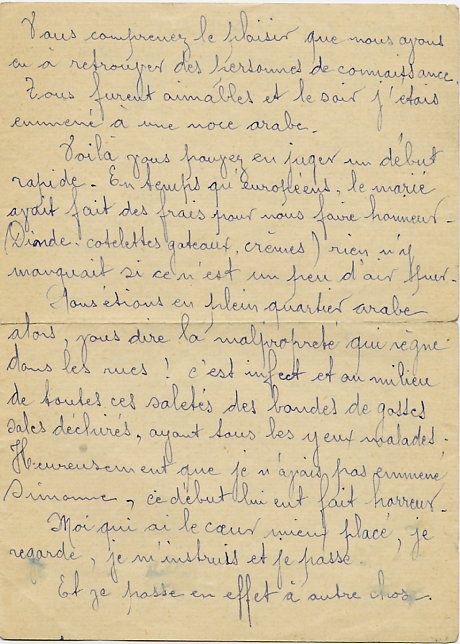 Vous comprenez le plaisir que nous ayons
eu à retrouver des personnes de connaissance.
Tous furent aimables et le soir j'étais
emmené à une noce arabe.
Voilà vous pouvez en juger un début
rapide. En temps qu'européens, le marié
avait fait des frais pour nous faire honneur.
(Dinde. cotelettes gateaux, crèmes) rien n'y
manquait si ce n'est un peu d'air pur.
Nous étions en plein quartier arabe
alors, vous dire la malpropreté qui règne
dans les rues ! c'est infect et au milieu
de toutes ces saletés des bandes de gosses
sales déchirés, ayant tous les yeux malades.
Heureusement que je n'avais pas emmené
Simonne, ce début lui eut fait horreur.
Moi qui ai le cœur mieux placé, je
regarde, je m'instruis et je passe.
Et je passe en effet à autre chose.